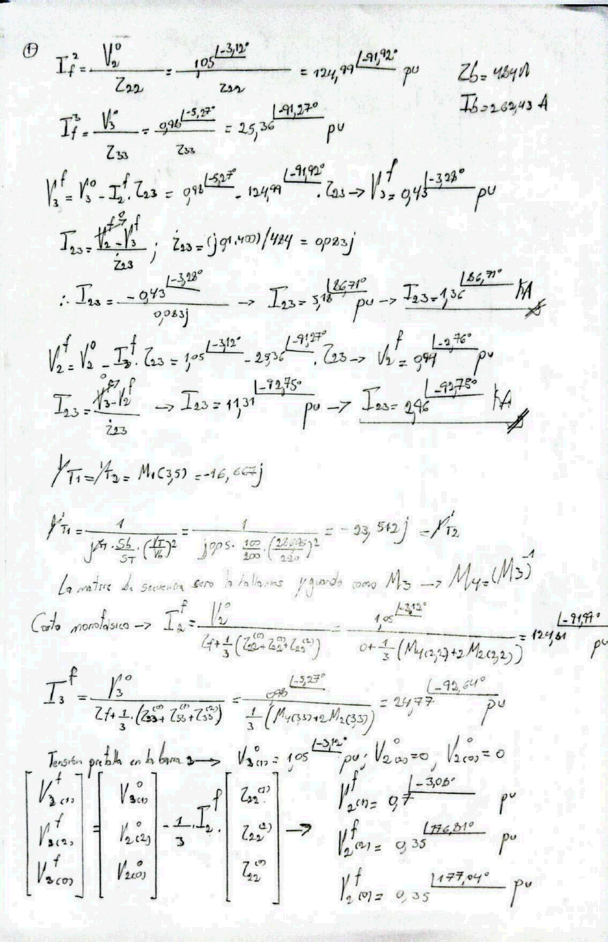 ①
I_f^2 = V_2^0 / Z_22 = 1,05 ∠-3,12° / Z_22 = 124,99 ∠-91,92° pu
Zb = 484 Ω
Ib = 262,43 A
I_f^3 = V_3^0 / Z_33 = 0,98 ∠-5,27° / Z_33 = 25,36 ∠-91,27° pu
V_3^f = V_3^0 - I_2^f · Z_23 = 0,98 ∠-5,27° - 124,99 ∠-91,92° · Z_23 → V_3^f = 0,43 ∠-3,28° pu
I_23 = (V_2^f - V_3^f) / ż_23 ; ż_23 = (j0,1·400)/484 = 0,083j
∴ I_23 = -0,43 ∠-3,28° / 0,083j → I_23 = 5,18 ∠86,71° pu → I_23 = 1,36 ∠86,71° kA
V_2^f = V_2^0 - I_3^f · Z_23 = 1,05 ∠-3,12° - 25,36 ∠-91,27° · Z_23 → V_2^f = 0,94 ∠-2,76° pu
I_23 = (V_3^f - V_2^f) / ż_23 → I_23 = 11,31 ∠-92,75° pu → I_23 = 2,96 ∠-92,75° kA
Y_T1 = Y_T2 = M1(3,5) = -16,667j
Y_T1 = 1 / (jX_T · Sb/ST · (VT/Vb)²) = 1 / (j0,05 · 100/200 · ( /220)²) = -23,512j = Y_T2
La matriz de secuencia cero la hallamos y guardo como M3 → M4 = (M3)^-1
Corto monofásico → I_2^f = V_2^0 / (Zf + 1/3 · (Z_22 + Z_22 + Z_22)) = 1,05 ∠-3,12° / (0 + 1/3 · (M4(2,2) + 2M2(2,2))) = ∠-91,99° pu
I_3^f = V_3^0 / (Zf + 1/3 · (Z_33 + Z_33 + Z_33)) = 0,98 ∠-5,27° / (1/3 (M4(3,3) + 2M2(3,3))) = 24,77 ∠-92,64° pu
Tensión prefalla en la barra 2 → V_2(1)^0 = 1,05 ∠-3,12° pu; V_2(2)^0 = 0, V_2(0)^0 = 0
[V_2(1)^f] = [V_2(1)^0] - 1/3 · I_2^f · [Z_22^(1)] → V_2(1)^f = 0,7 ∠-3,08° pu
[V_2(2)^f] [V_2(2)^0] [Z_22^(2)] V_2(2)^f = 0,35 ∠176,81° pu
[V_2(0)^f] [V_2(0)^0] [Z_22^(0)] V_2(0)^f = 0,35 ∠177,04° pu